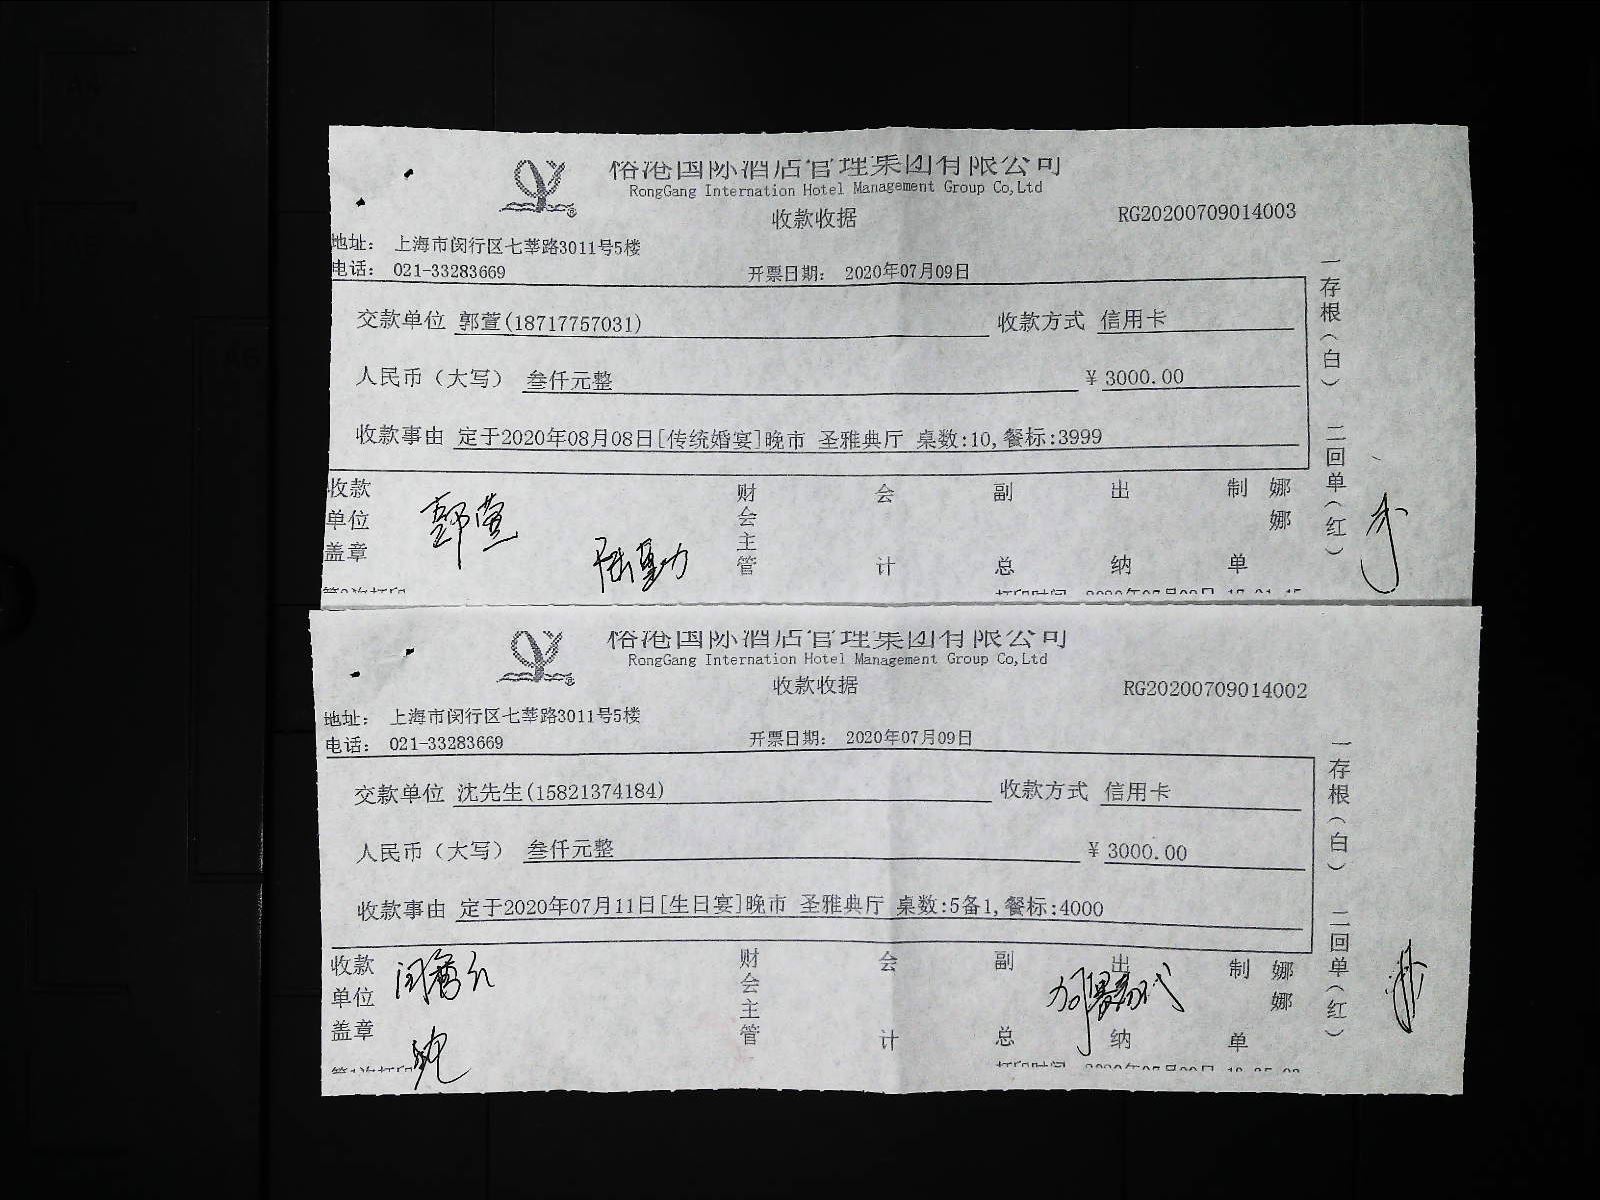 裕港国际酒店管理集团有限公司
RongGang Internation Hotel Management Group Co,Ltd
收款收据
RG20200709014003
地址： 上海市闵行区七莘路3011号5楼
电话： 021-33283669
开票日期： 2020年07月09日
交款单位 郭萱(18717757031)
收款方式 信用卡
人民币（大写） 叁仟元整
¥ 3000.00
收款事由 定于2020年08月08日[传统婚宴]晚市 圣雅典厅 桌数:10,餐标:3999
一存根（白） 二回单（红）
收款单位盖章
郭萱
财会主管
会计
副总
出纳
制单
娜娜
裕港国际酒店管理集团有限公司
RongGang Internation Hotel Management Group Co,Ltd
收款收据
RG20200709014002
地址： 上海市闵行区七莘路3011号5楼
电话： 021-33283669
开票日期： 2020年07月09日
交款单位 沈先生(15821374184)
收款方式 信用卡
人民币（大写） 叁仟元整
¥ 3000.00
收款事由 定于2020年07月11日[生日宴]晚市 圣雅典厅 桌数:5备1,餐标:4000
一存根（白） 二回单（红）
收款单位盖章
财会主管
会计
副总
出纳
制单
娜娜